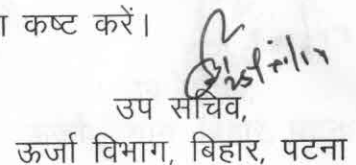 कष्ट करें।
उप सचिव,
ऊर्जा विभाग, बिहार, पटना